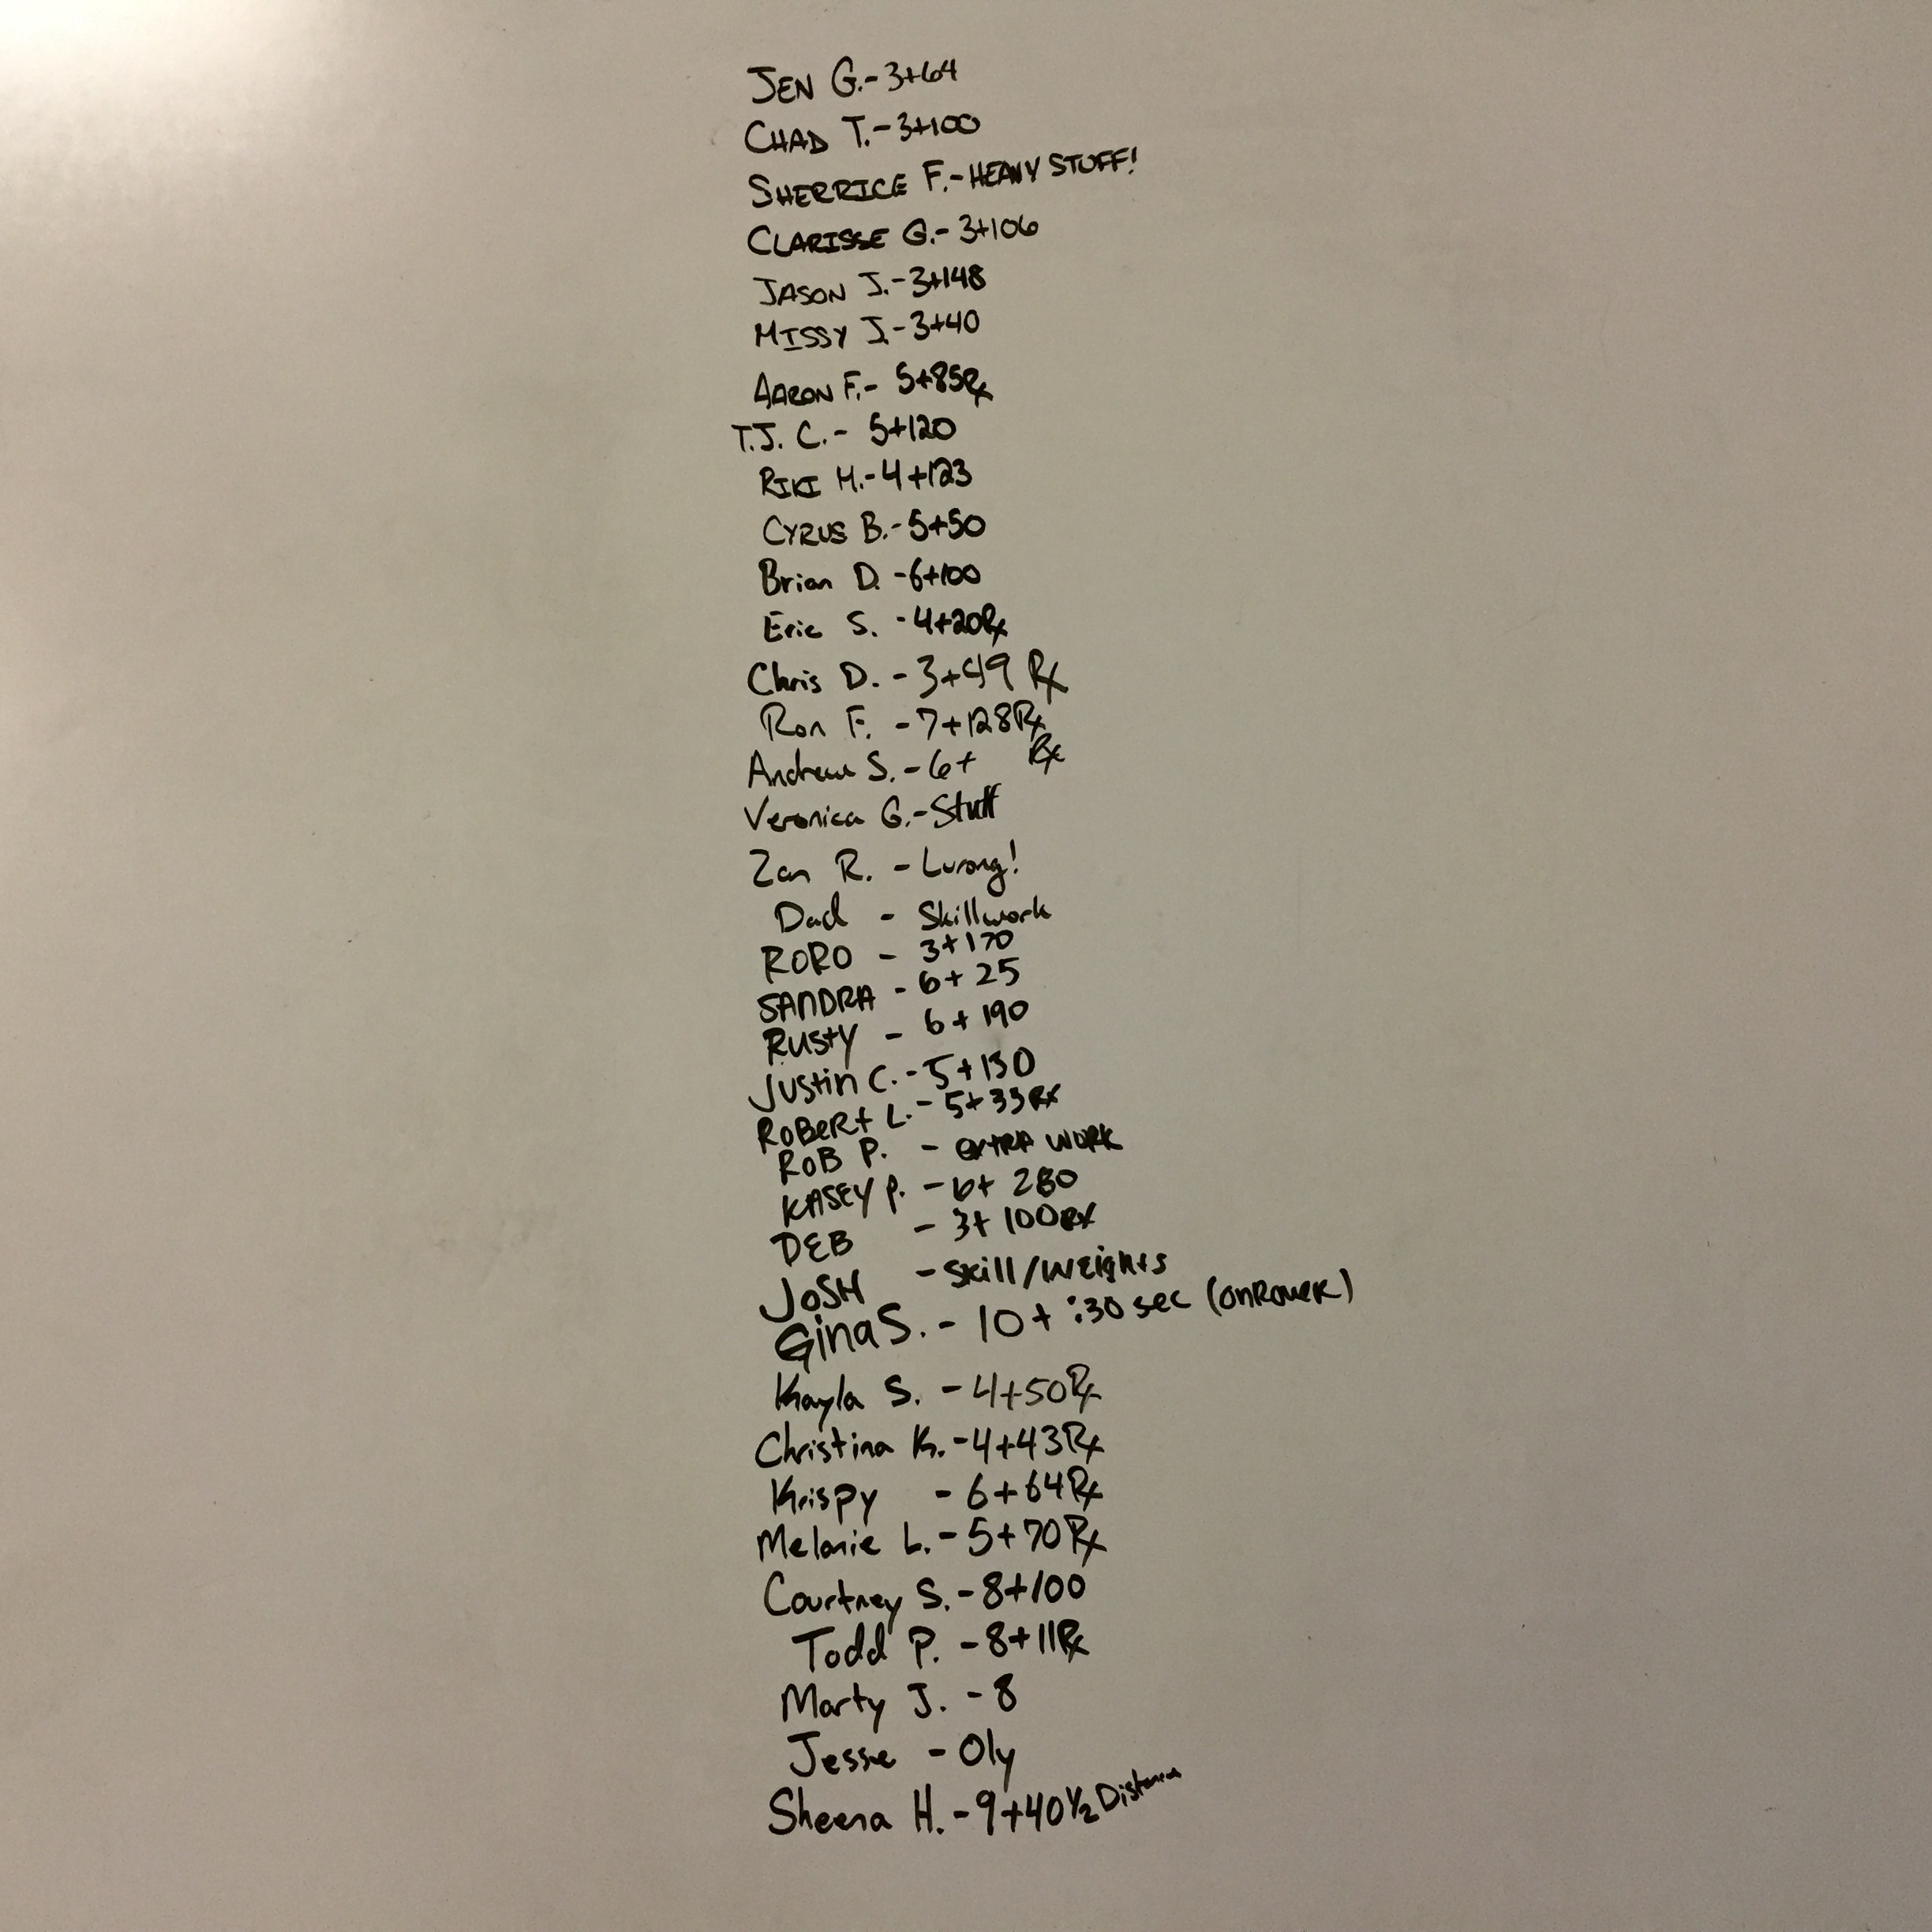 JEN G.-3+64
CHAD T.-3+100
SHERRICE F.-HEAVY STUFF!
CLARISSE G.-3+106
JASON J.-3+148
MISSY J.-3+40
AARON F.- 5+85Rx
T.J. C.- 5+120
RIKI H.-4+123
CYRUS B.-5+50
Brian D. -6+100
Eric S. -4+20Rx
Chris D. -3+49 Rx
Ron F. -7+128Rx
Andrew S. -6+ Rx
Veronica G.-Stuff
Zan R. - Lurong!
Dad - Skillwork
RORO - 3+170
SANDRA - 6+ 25
RUSTY - 6+ 190
JUSTIN C. -5+130
ROBERT L. - 5+33RX
ROB P. - EXTRA WORK
KASEY P. -6+ 280
DEB - 3+ 100RX
JOSH - Skill/WEIGHTS
Gina S. - 10+ :30 sec (ON ROWER)
Kayla S. -4+50Rx
Christina K. -4+43Rx
Krispy - 6+64Rx
Melanie L. - 5+70Rx
Courtney S. -8+100
Todd P. -8+11Rx
Marty J. -8
Jesse - Oly
Sheena H. -9+40 1/2 Distance